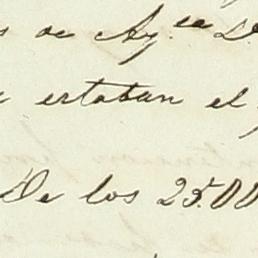 de Ay.ca D
estaban el
De los 25.00